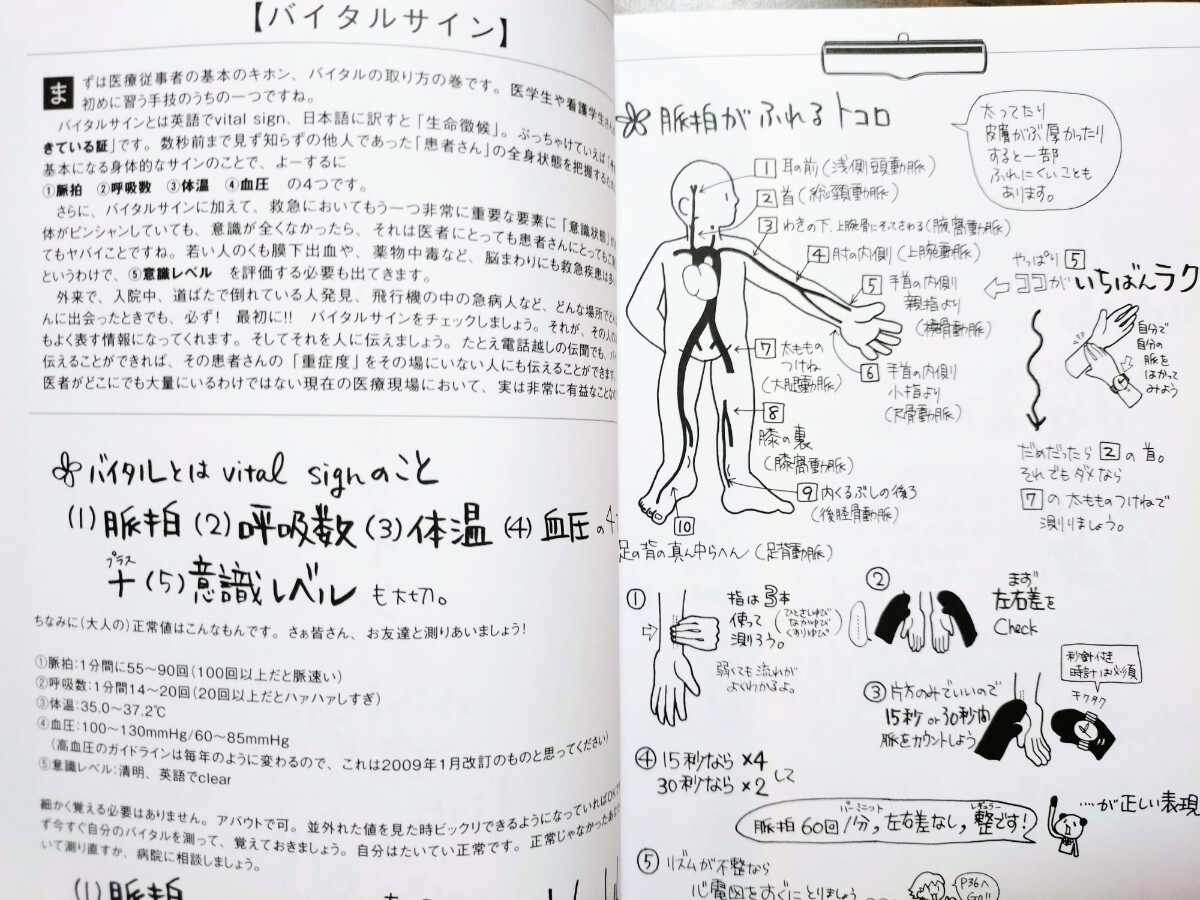 【バイタルサイン】
まずは医療従事者の基本のキホン、バイタルの取り方の巻です。医学生や看護学生さん
初めに習う手技のうちの一つですね。
バイタルサインとは英語でvital sign、日本語に訳すと「生命徴候」。ぶっちゃけていえば
きている証」です。数秒前まで見ず知らずの他人であった「患者さん」の全身状態を把握するため
基本になる身体的なサインのことで、よーするに
①脈拍 ②呼吸数 ③体温 ④血圧 の4つです。
さらに、バイタルサインに加えて、救急においてもう一つ非常に重要な要素に「意識状態」
体がピンシャンしていても、意識が全くなかったら、それは医者にとっても患者さんにとっても
てもヤバイことですね。若い人のくも膜下出血や、薬物中毒など、脳まわりにも救急疾患は多
というわけで、⑤意識レベル を評価する必要も出てきます。
外来で、入院中、道ばたで倒れている人発見、飛行機の中の急病人など、どんな場所で
んに出会ったときでも、必ず! 最初に!! バイタルサインをチェックしましょう。それが、その人の
もよく表す情報になってくれます。そしてそれを人に伝えましょう。たとえ電話越しの伝聞でも、
伝えることができれば、その患者さんの「重症度」をその場にいない人にも伝えることができます
医者がどこにでも大量にいるわけではない現在の医療現場において、実は非常に有益なことな
バイタルとは vital signのこと
(1)脈拍 (2)呼吸数 (3)体温 (4)血圧の4
プラス
+(5)意識レベルも大切。
ちなみに(大人の)正常値はこんなもんです。さぁ皆さん、お友達と測りあいましょう!
①脈拍:1分間に55〜90回(100回以上だと脈速い)
②呼吸数:1分間14〜20回(20回以上だとハァハァしすぎ)
③体温:35.0〜37.2℃
④血圧:100〜130mmHg/60〜85mmHg
(高血圧のガイドラインは毎年のように変わるので、これは2009年1月改訂のものと思ってください)
⑤意識レベル:清明、英語でclear
細かく覚える必要はありません。アバウトで可。並外れた値を見た時ビックリできるようになっていればOK
ず今すぐ自分のバイタルを測って、覚えておきましょう。自分はたいてい正常です。正常じゃなかったあ
いて測り直すか、病院に相談しましょう。
(1)脈拍
脈拍がふれるトコロ
太ってたり
皮膚がぶ厚かったり
すると一部
ふれにくいことも
あります。
1 耳の前(浅側頭動脈)
2 首(総頸動脈)
3 わきの下、上腕骨にそってさわる(腋窩動脈)
4 肘の内側(上腕動脈)
5 手首の内側
親指より
(橈骨動脈)
6 手首の内側
小指より
(尺骨動脈)
7 太ももの
つけね
(大腿動脈)
8
膝の裏
(膝窩動脈)
9 内くるぶしの後ろ
(後脛骨動脈)
10
足の背の真ん中らへん(足背動脈)
やっぱり 5
ココが いちばんラク
自分で
自分の
脈を
はかって
みよう
だめだったら 2 の首。
それでもダメなら
7 の太もものつけねで
測りましょう。
①
指は3本
使って
測ろう。
(ひとさしゆび
ながゆび
くすりゆび)
弱くても流れが
よくわかるよ。
②
まず
左右差を
Check
③片方のみでいいので
15秒or30秒間
脈をカウントしよう
秒針付き
時計は必須
チクタク
④15秒なら×4
30秒なら×2 して
パーミニット
レギュラー
脈拍60回/分,左右差なし,整です!
…が正しい表現
⑤リズムが不整なら
心電図をすぐにとりましょう
P36へ
Go!!